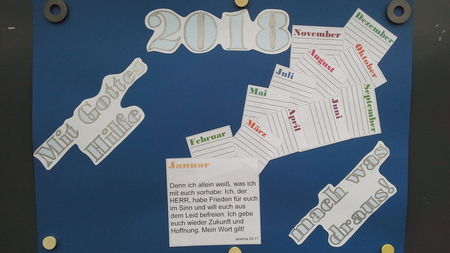 2018
Mit Gottes
Hilfe
Januar
Denn ich allein weiß, was ich
mit euch vorhabe: Ich, der
HERR, habe Frieden für euch
im Sinn und will euch aus
dem Leid befreien. Ich gebe
euch wieder Zukunft und
Hoffnung. Mein Wort gilt!
Jeremia 29,11
Februar
März
April
Mai
Juni
Juli
August
September
Oktober
November
Dezember
mach was
draus!